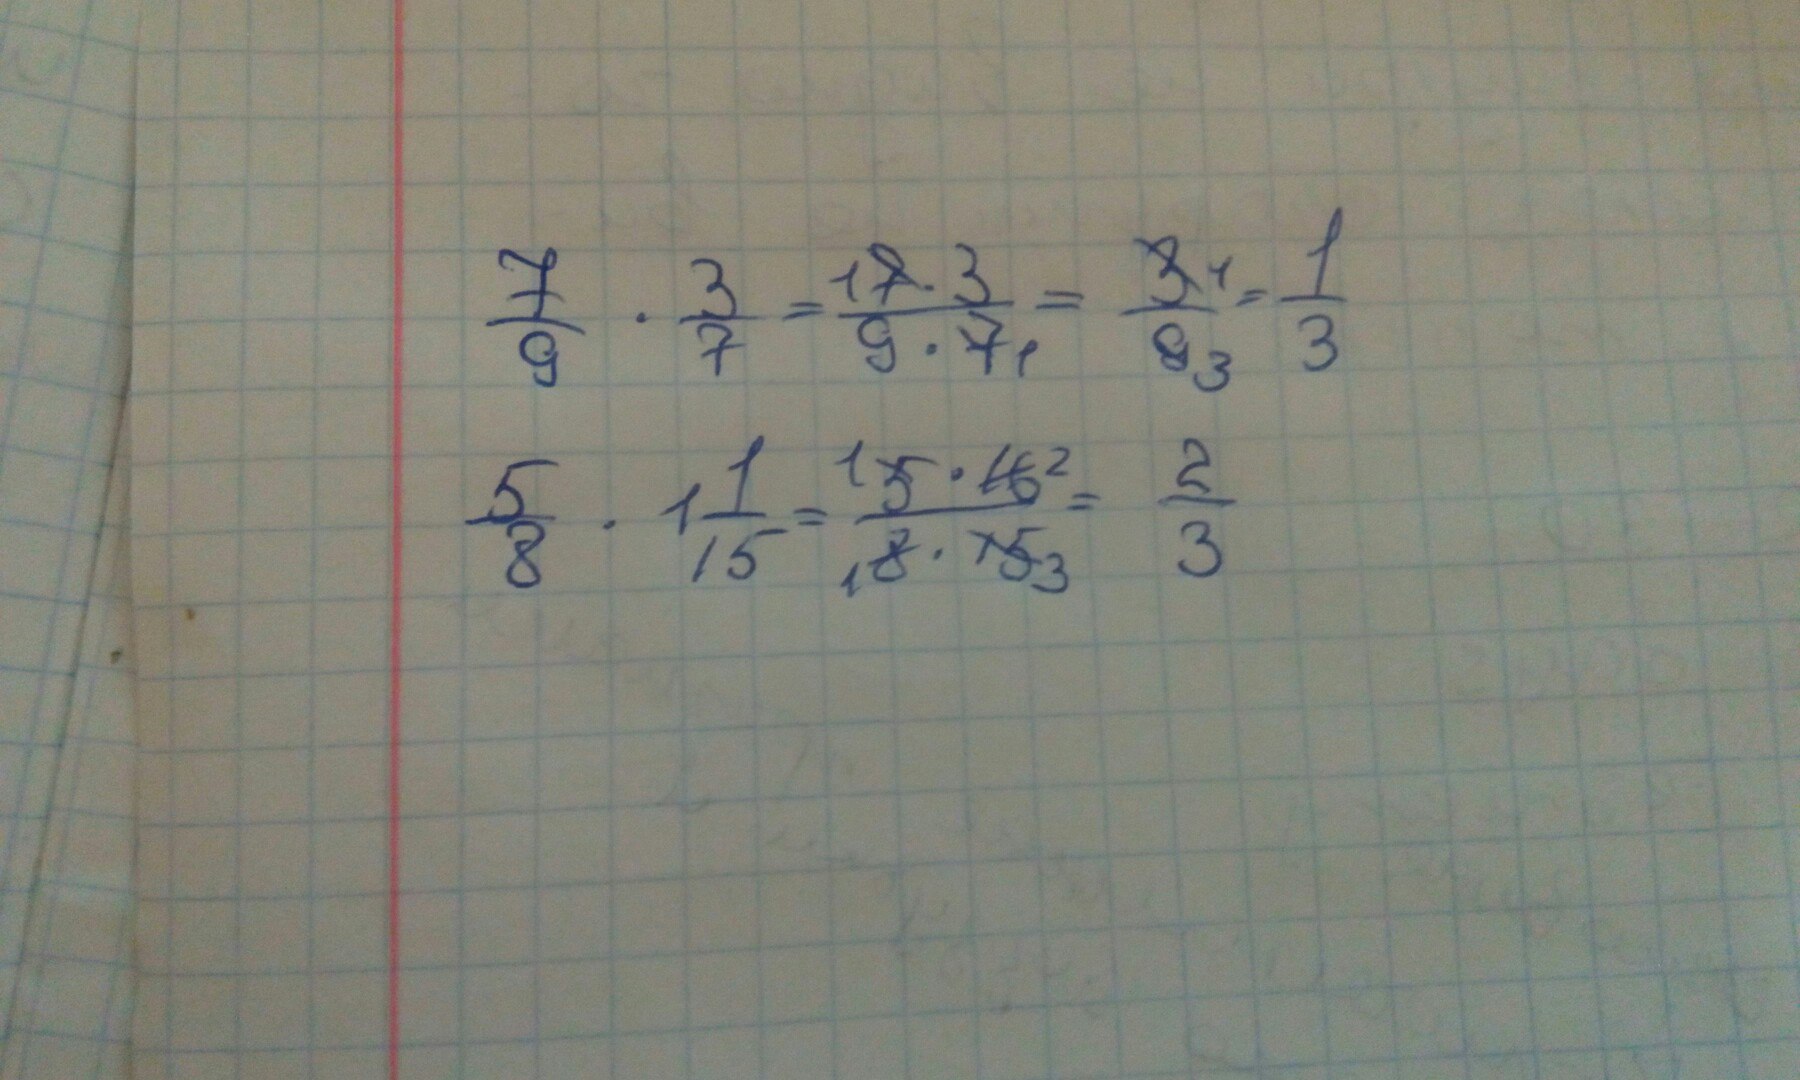 7/9 · 3/7 = 1 7 · 3 / 9 · 7 1 = 3 1 / 9 3 = 1/3
5/8 · 1 1/15 = 1 5 · 16 2 / 1 8 · 15 3 = 2/3